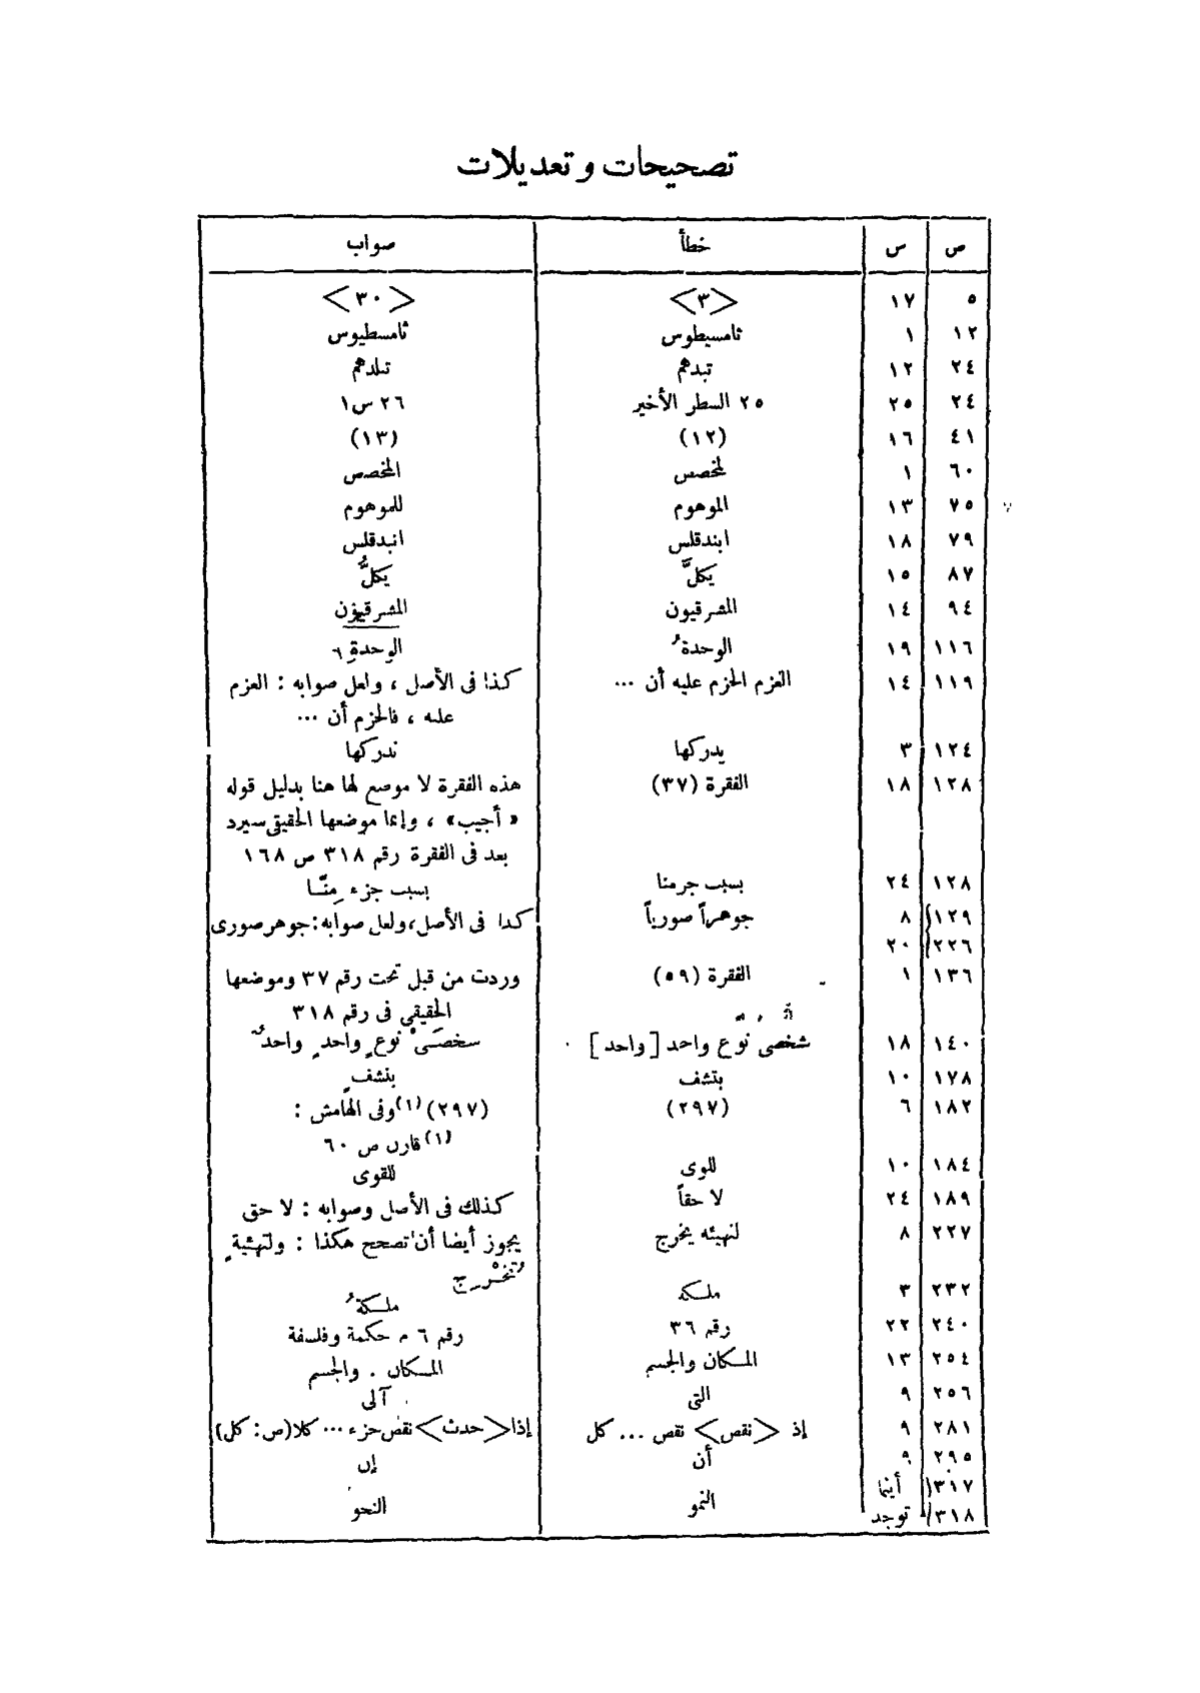 تصحيحات وتعديلات
ص س خطأ صواب
٥ ١٧ <٣> <٣٠>
١٢ ١ ثامسيطوس ثامسطيوس
٢٤ ١٢ تبدهم تبلدهم
٢٤ ٢٥ ٢٥ السطر الأخير ٢٦ س١
٤١ ١٦ (١٢) (١٣)
٦٠ ١ لمخصص المخصص
٧٥ ١٣ الموهوم للموهوم
٧٩ ١٨ ابندقلس انبدقلس
٨٧ ١٥ يكلَّ يكلُّ
٩٤ ١٤ المشرقيون المشرقيون
١١٦ ١٩ الوحدةُ الوحدةِ ٦
١١٩ ١٤ العزم الحزم عليه أن ... كذا فى الأصل ، ولعل صوابه : العزم
عليه ، فالحزم أن ...
١٢٤ ٣ يدركها ندركها
١٢٨ ١٨ الفقرة (٣٧) هذه الفقرة لا موضع لها هنا بدليل قوله
« أجيب» ، وإنما موضعها الحقيقى سيرد
بعد فى الفقرة رقم ٣١٨ ص ١٦٨
١٢٨ ٢٤ بسبب جرمنا بسبب جزء مِنّا
١٢٩ ٨ جوهراً صورياً كذا فى الأصل، ولعل صوابه: جوهر صورى
٢٢٦ ٢٠
١٣٦ ١ الفقرة (٥٩) وردت من قبل تحت رقم ٣٧ وموضعها
الحقيقى فى رقم ٣١٨
١٤٠ ١٨ شخصى نوع واحد [واحد] شخصَىْ نوعٍ واحدٍ واحدٌ
١٧٨ ١٠ بتشف بنشف
١٨٢ ٦ (٢٩٧) (٢٩٧) (١) وفى الهامش :
(١) قارن ص ٦٠
١٨٤ ١٠ للوى للقوى
١٨٩ ٢٤ لا حقاً كذلك فى الأصل وصوابه : لا حق
٢٢٧ ٨ لنهيئه يخرج يجوز أيضا أن تصحح هكذا : ولتهيئةٍ
تُخْرِج
٢٣٢ ٣ ملكة ملكةُ
٢٤٠ ٢٢ رقم ٣٦ رقم ٦ م حكمة وفلسفة
٢٥٤ ١٣ المكان والجسم المكان . والجسم
٢٥٦ ٩ التى آلى
٢٨١ ٩ إذ <نقص> نقص ... كل إذا <حدث> نقص جزء ... كلا (ص : كل)
٢٩٥ ٩ أن إن
٣١٧ أينما النمو النحو
٣١٨ توجد